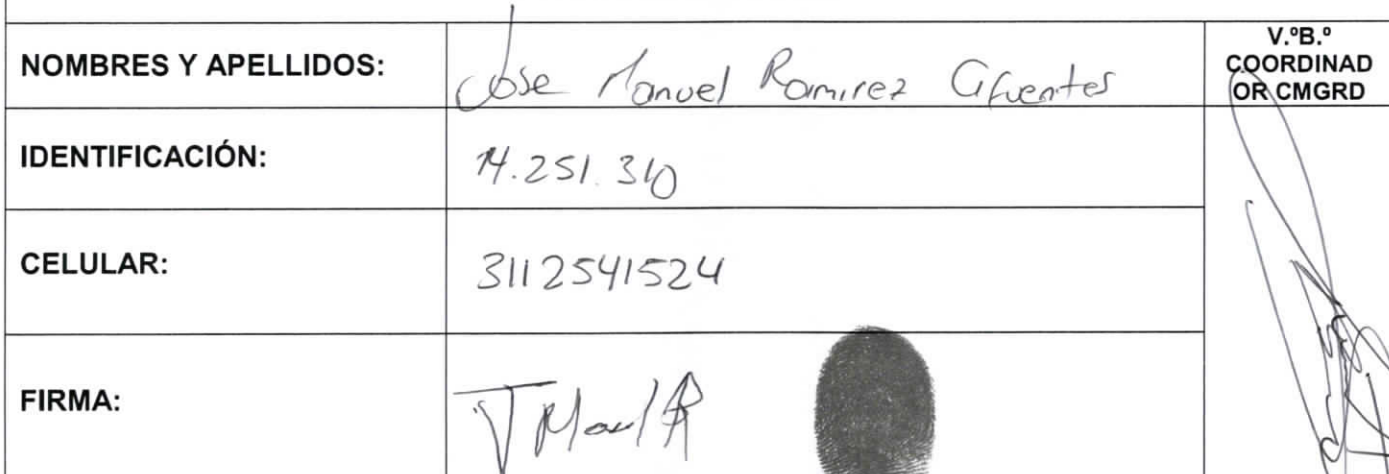 NOMBRES Y APELLIDOS: Jose Manuel Ramirez Cifuentes
V.ºB.º
COORDINAD
OR CMGRD
IDENTIFICACIÓN: 14.251.310
CELULAR: 3112541524
FIRMA: